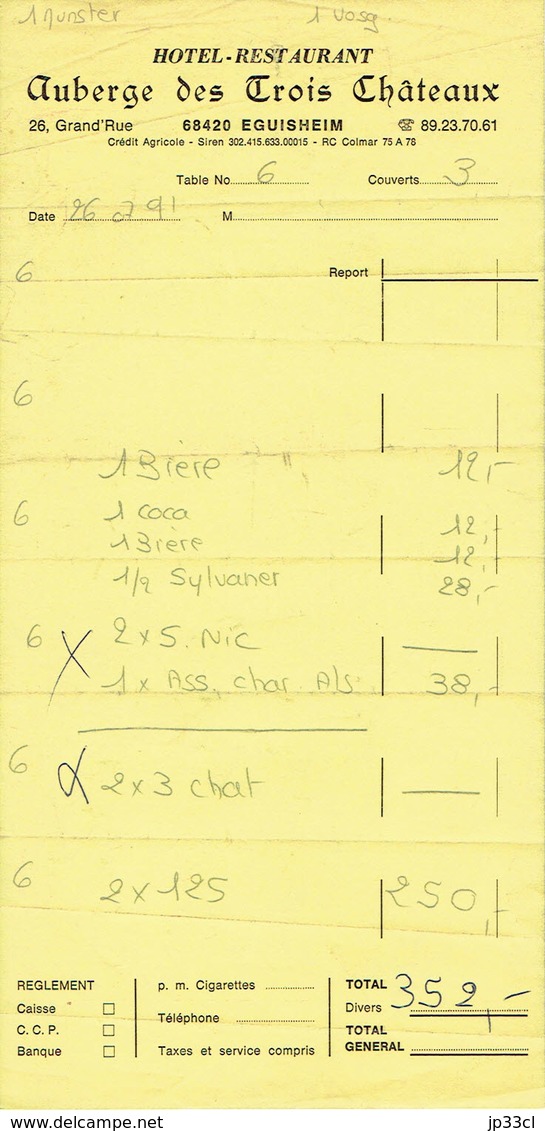 1 Munster 1 Vosg.
HOTEL-RESTAURANT
Auberge des Trois Châteaux
26, Grand'Rue 68420 EGUISHEIM ☎ 89.23.70.61
Crédit Agricole - Siren 302.415.633.00015 - RC Colmar 75 A 78
Table No 6 Couverts 3
Date 26 07 91 M
6 Report
6
1 Bière " 12,-
6 1 coca 12,-
1 Bière 12,-
1/2 Sylvaner 28,-
6 2 x S. Nic —
1 x Ass. char. Als 38,-
6 2 x 3 chat —
6 2 x 125 250,-
REGLEMENT p. m. Cigarettes TOTAL 352,-
Caisse Divers
Téléphone
C. C. P. TOTAL
Banque Taxes et service compris GENERAL
jp33cl